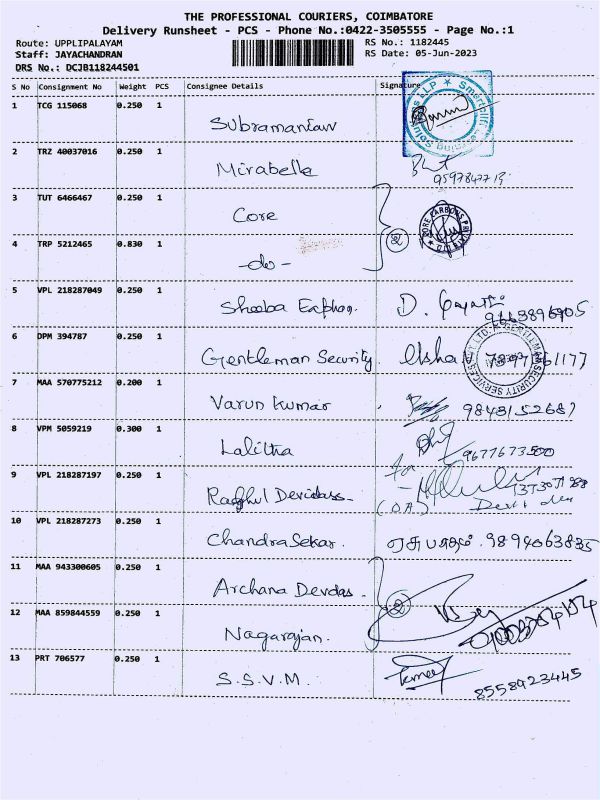 THE PROFESSIONAL COURIERS, COIMBATORE
Delivery Runsheet - PCS - Phone No.:0422-3505555 - Page No.:1
Route: UPPLIPALAYAM RS No.: 1182445
Staff: JAYACHANDRAN RS Date: 05-Jun-2023
DRS No.: DCJB118244501
S No Consignment No Weight PCS Consignee Details Signature
1 TCG 115068 0.250 1 Subramaniam
2 TRZ 40037016 0.250 1 Mirabelle
3 TUT 6466467 0.250 1 Core
4 TRP 5212465 0.830 1 -do- 2
5 VPL 218287049 0.250 1 Sheeba D. 9663896905
6 DPM 394787 0.250 1 Gentleman Security. Usha
7 MAA 570775212 0.200 1 Varun Kumar 9843152687
8 VPM 5059219 0.300 1 Lalitha 9677673500
9 VPL 218287197 0.250 1 Devidass for (OA)
10 VPL 218287273 0.250 1 Chandra Sekar. 9894063835
11 MAA 943300605 0.250 1 Archana Devdas. 2
12 MAA 859844559 0.250 1 Nagarajan.
13 PRT 706577 0.250 1 S.S.V.M. 8558923445